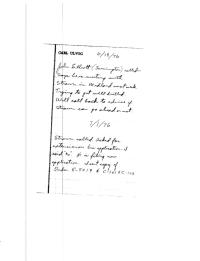 CARL ULVOG 6/18/96
John Elliott (Farmington) called
Says he is meeting with
Strawn in Midland next week
Trying to get well drilled
Will call back to advise if
Strawn can go ahead or not
7/1/96
Strawn called asked for
extension on his application. I
said "no" & is filing new
application. Sent copy of
Order R-